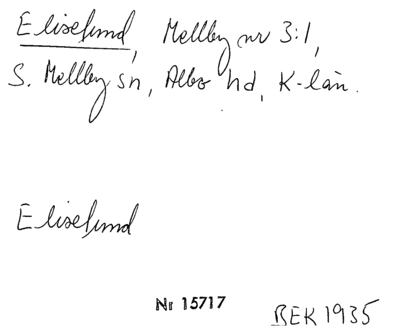 Eliselund, Mellby nr 3:1,
S. Mellby sn, Albo hd, K-län.
Eliselund
Nr 15717
BEK 1935